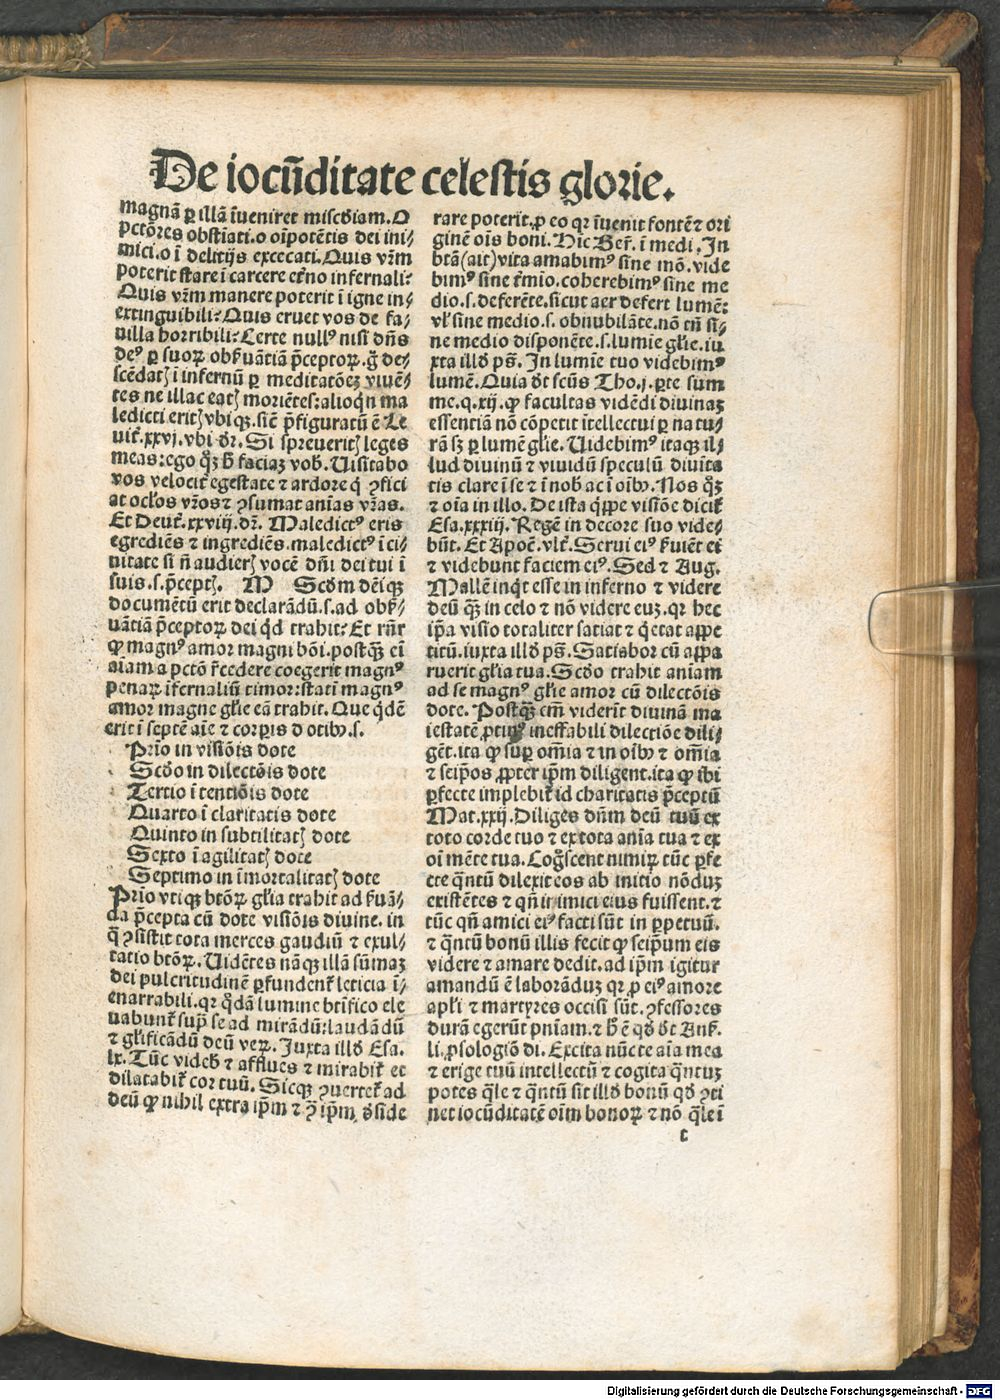 De iocūditate celestis glorie.
magnā ꝑ illā īveniret miscd̄iam. O
pctōres obstīati. o oīpotētis dei ini⸗
mici. o ī delitijs excecati. Quis vr̄m
poterit stare ī carcere etn̄o infernali?
Quis vr̄m manere poterit ī igne in⸗
extinguibili? Quis eruet vos de fa⸗
uilla horribili? Certe nullꝰ nisi dn̄s
deꝰ ꝑ suoꝝ obẜuātiā p̄ceptoꝝ. g̊ de⸗
scēdatꝭ ī infernū ꝑ meditatōeꝫ viuē⸗
tes ne illac eatꝭ moriētes: alioqn̄ ma
ledicti eritꝭ vbiqꝫ. sic̄ p̄figuratū ē Le
uit̄. xxvj. vbi dr̄. Si spreueritꝭ leges
meas: ego qꝫ̄ h̄ faciaꝫ vob̄. Uisitabo
vos velocit̄ egestate ⁊ ardore q̄ ꝯfici
at ocl̄os vr̄os ⁊ ꝯsumat anīas vr̄as.
Et Deut̄. xxviij. dr̄. Maledictꝰ eris
egrediēs ⁊ ingrediēs. maledictꝰ ī ci⸗
uitate si n̄ audierꝭ vocē dn̄i dei tui ī
suis. s. p̄ceptꝭ. M Scd̄m dēiqꝫ
documētū erit declarādū. s. ad obẜ⸗
uātiā p̄ceptoꝝ dei qd̄ trahit? Et rn̄r
ꝙ magnꝰ amor magni bōi. postqꝫ̄ ei
aīam a pctō r̄cedere coegerit magnꝰ
penaꝝ īfernaliū timor: statī magnꝰ
amor magne gl̄ie eā trahit. Que qd̄ē
erit ī septē aīe ⁊ corꝑis dotibꝰ. s.
Prīo in visiōis dote
Scd̄o in dilectōis dote
Tertio ī tentiōis dote
Quarto ī claritatis dote
Quinto in subtilitatꝭ dote
Sexto ī agilitatꝭ dote
Septimo in īmortalitatꝭ dote
Prīo vtiqꝫ btōꝝ gl̄ia trahit ad ẜuā⸗
da p̄cepta cū dote visiōis diuine. in
q̄ ꝯsistit tota merces gaudiū ⁊ exul⸗
tatio btōꝝ. Uidētes nāqꝫ illā sūmaꝫ
dei pulcritudinē ꝑfundent̄ leticia ī⸗
enarrabili. qr qd̄ā lumine btīfico ele
uabunt̄ sup̄ se ad mirādū: laudādū
⁊ gl̄ificādū deū veꝝ. Juxta illd̄ Esa.
lx. Tūc videb̄ ⁊ afflues ⁊ mirabit̄ et
dilatabit̄ cor tuū. Sicqꝫ ꝯuertet̄ ad
deū ꝙ nihil extra ip̄m ⁊ p̄ ip̄m, d̄side
rare poterit. ꝓ eo qr īvenit fontē ⁊ ori
ginē oīs boni. Hic Ber̄. ī medi. In
btā (ait) vita amabimꝰ sine mō. vide
bimꝰ sine tr̄mio. coherebimꝰ sine me
dio. s. deferēte. sicut aer defert lumē:
vl̄ sine medio. s. obnubilāte. nō tn̄ si⸗
ne medio disponēte. s. lumīe gl̄ie. iu
xta illd̄ ps̄. In lumīe tuo videbimꝰ
lumē. Quia d̄t scūs Tho. j. ꝑte sum
me. q. xij. ꝙ facultas vidēdi divinaꝫ
essentiā nō cōpetit ītellectui ꝑ natu⸗
rā sꝫ ꝑ lumē gl̄ie. Uidebimꝰ itaqꝫ il⸗
lud diuinū ⁊ viuidū speculū diuīta
tis clare ī se ⁊ ī nob̄ ac ī oībꝰ. Nos qꝫ̄
⁊ oīa in illo. De ista qͥppe visiōe dicit̄
Esa. xxxiij. Regē in decore suo vide⸗
būt. Et Apoc̄. vlt̄. Serui eiꝰ ẜuiēt ei
⁊ videbunt faciem eiꝰ. Sed ⁊ Aug.
Mallē inqͥt esse in inferno ⁊ videre
deū qꝫ̄ in celo ⁊ nō videre euꝫ. qr hec
ip̄a visio totaliter satiat ⁊ qͥetat appe
titū. iuxta illd̄ ps̄. Satiabor cū appa
ruerit gl̄ia tua. Scd̄o trahit anīam
ad se magnꝰ gl̄ie amor cū dilectōis
dote. Postqꝫ̄ em̄ viderīt diuinā ma
iestatē ꝓtinꝰ ineffabili dilectiōe dili⸗
gēt. ita ꝙ suꝑ om̄ia ⁊ in oībꝰ ⁊ om̄ia
⁊ seip̄os ꝓpter ip̄m diligent. ita ꝙ ibi
ꝑfecte implebit̄ id charitatis p̄ceptū
Mat. xxij. Diliges dn̄m deū tuū ex
toto corde tuo ⁊ ex tota anīa tua ⁊ ex
oī mēte tua. Cogͦscent nimiꝝ tūc ꝑfe
cte qn̄tū dilexit eos ab initio nōduꝫ
existētes ⁊ qn̄ inimici eius fuissent. ⁊
tūc qn̄ amici eiꝰ facti sūt in ꝑpetuū.
⁊ qn̄tū bonū illis fecit ꝙ seip̄um eis
videre ⁊ amare dedit. ad ip̄m igitur
amandū ē laborāduꝫ qr ꝓ eiꝰ amore
apl̄i ⁊ martyres occisi sūt. ꝯfessores
durā egerūt pn̄iam. ⁊ h̄ ē qd̄ d̄t Anẜ.
li. ꝓsologiō di. Excita nūc te aīa mea
⁊ erige tuū intellectū ⁊ cogita qn̄tuꝫ
potes qͣle ⁊ qn̄tū sit illd̄ bonū qd̄ ꝯti
net iocūditatē oīm bonoꝝ ⁊ nō qͣlē ī
c
Digitalisierung gefördert durch die Deutsche Forschungsgemeinschaft - DFG